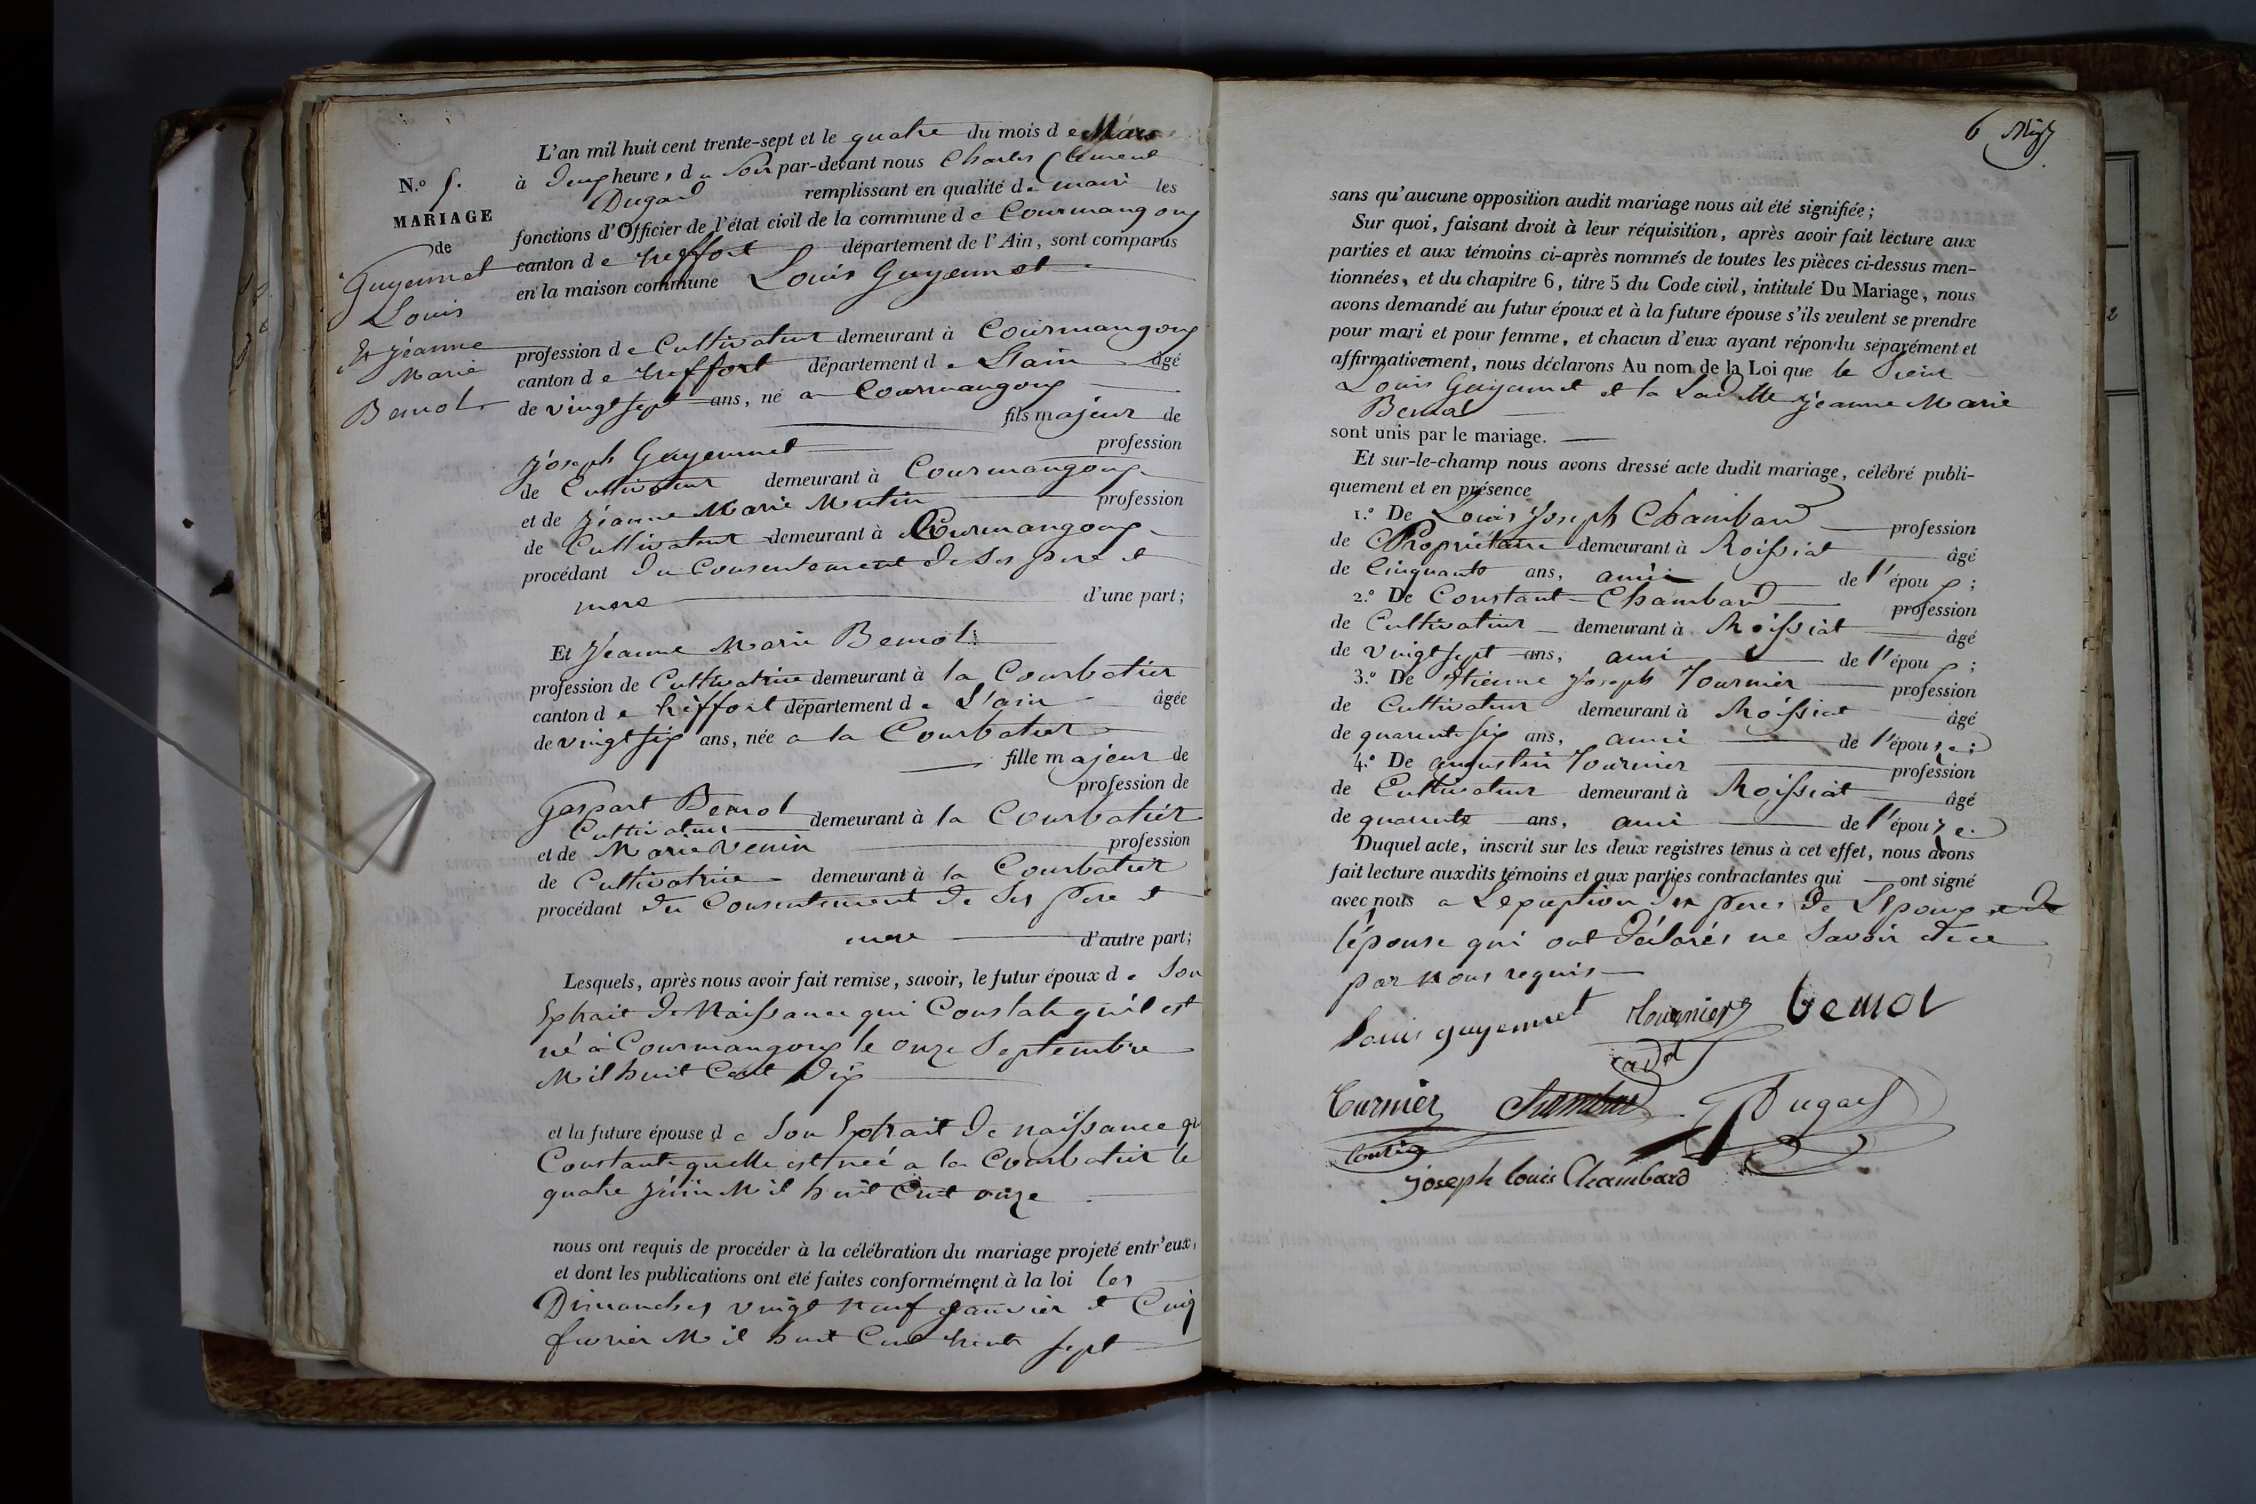 N.o 5.
MARIAGE
de
Guyennet
Louis
Et jeanne
Marie
Bemol
L'an mil huit cent trente-sept et le quatre du mois de Mars
à deux heures du Soir par-devant nous Charles Clement
Dugad remplissant en qualité de maire les
fonctions d'Officier de l'état civil de la commune de Courmangoux
canton de treffort département de l'Ain, sont comparus
en la maison commune Louis Guyennet
profession de Cultivateur demeurant à Courmangoux
canton de treffort département de Lain âgé
de vingt sept ans, né a Courmangoux
fils majeur de
joseph Guyennet profession
de Cultivateur demeurant à Courmangoux
et de jeanne Marie Mutin profession
de Cultivateur demeurant à Courmangoux
procédant du Consentement de Ses pere et
mere d'une part;
Et jeanne Marie Bemol
profession de Cultivatrice demeurant à la Courbatier
canton de treffort département de L'ain âgée
de vingt six ans, née a la Courbatier
fille majeur de
profession de
Gaspart Bemol
Cultivateur demeurant à la Courbatier
et de Marie Venin profession
de Cultivatrice demeurant à la Courbatier
procédant du Consentement de Ses pere et
mere d'autre part;
Lesquels, après nous avoir fait remise, savoir, le futur époux de Son
Extrait de Naissance qui Constate qu'il est
né à Courmangoux le onze Septembre
Mil huit Cent Dix
et la future épouse de Son Extrait de naissance qui
Constate quelle est neé a la Courbatier le
quatre juin Mil huit Cent onze
nous ont requis de procéder à la célébration du mariage projeté entr'eux,
et dont les publications ont été faites conformément à la loi les
Dimanches vingt neuf janvier et Cinq
fevrier Mil huit Cent trente sept
6
sans qu'aucune opposition audit mariage nous ait été signifiée;
Sur quoi, faisant droit à leur réquisition, après avoir fait lecture aux
parties et aux témoins ci-après nommés de toutes les pièces ci-dessus men-
tionnées, et du chapitre 6, titre 5 du Code civil, intitulé Du Mariage, nous
avons demandé au futur époux et à la future épouse s'ils veulent se prendre
pour mari et pour femme, et chacun d'eux ayant répondu séparément et
affirmativement, nous déclarons Au nom de la Loi que le Sieur
Louis Guyennet et la Dlle jeanne Marie
Bemol
sont unis par le mariage.
Et sur-le-champ nous avons dressé acte dudit mariage, célébré publi-
quement et en présence
1.o De Louis Joseph Chambard profession
de Propriétaire demeurant à Roissiat âgé
de Cinquante ans, ami de l'époux;
2.o De Constant Chambard profession
de Cultivateur demeurant à Roissiat âgé
de vingt sept ans, ami de l'époux;
3.o De Etienne joseph Tournier profession
de Cultivateur demeurant à Roissiat âgé
de quarente six ans, ami de l'épouse;
4.o De augustin Tournier profession
de Cultivateur demeurant à Roissiat âgé
de quarente ans, ami de l'épouse.
Duquel acte, inscrit sur les deux registres tenus à cet effet, nous avons
fait lecture auxdits témoins et aux parties contractantes qui ont signé
avec nous a Lexception des peres de Lepoux et de
lépouse qui ont déclarés ne Savoir de ce
par nous requis
Louis guyennet Tournier bemol
Turnier Chambard Dugad
joseph louis Chambard